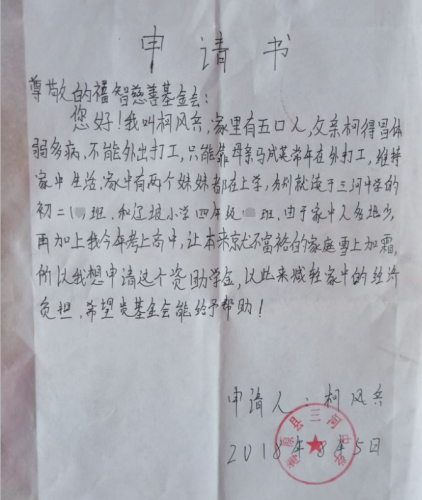 申请书
尊敬的福智慈善基金会:
您好!我叫柯风兵,家里有五口人,父亲柯得曾体
弱多病,不能外出打工,只能靠母亲马成英常年在外打工,维持
家中生活,家中有两个妹妹都在上学,分别就读于三河中学的
初二(班,和辽坡小学四年级班,由于家中人多地少,
再加上我今年考上高中,让本来就不富裕的家庭雪上加霜,
所以我想申请这个资助学金,以此来减轻家中的经济
负担,希望贵基金会能给予帮助!
申请人:柯风兵
2018年8月5日
县三河中